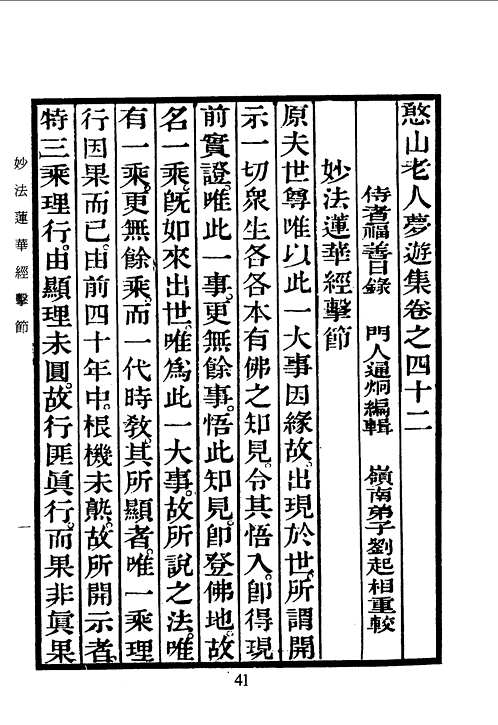 憨山老人夢遊集卷之四十二
侍者福善日錄　門人通炯編輯　嶺南弟子劉起相重較
妙法蓮華經擊節
原夫世尊唯以此一大事因緣故。出現於世。所謂開
示一切衆生各各本有佛之知見。令其悟入。卽得現
前實證。唯此一事。更無餘事。悟此知見。卽登佛地。故
名一乘。旣如來出世。唯爲此一大事。故所說之法。唯
有一乘。更無餘乘。而一代時教。其所顯者。唯一乘理
行因果而已。由前四十年中。根機未熟。故所開示者。
特三乘理行。由顯理未圓。故行匪眞行。而果非眞果
妙法蓮華經擊節
一
41